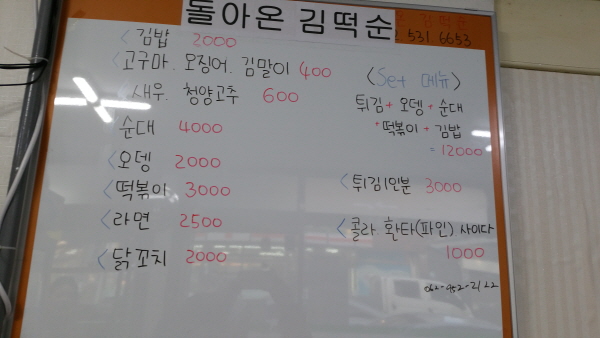 돌아온 김떡순
531.6653
<김밥 2000
<고구마. 오징어. 김말이 400
<새우. 청양고추 600
순대 4000
<오뎅 2000
<떡볶이 3000
<라면 2500
<닭꼬치 2000
<Set 메뉴>
튀김+오뎅+순대
+떡볶이+김밥
=12000
<튀김1인분 3000
<콜라 환타(파인) 사이다
1000